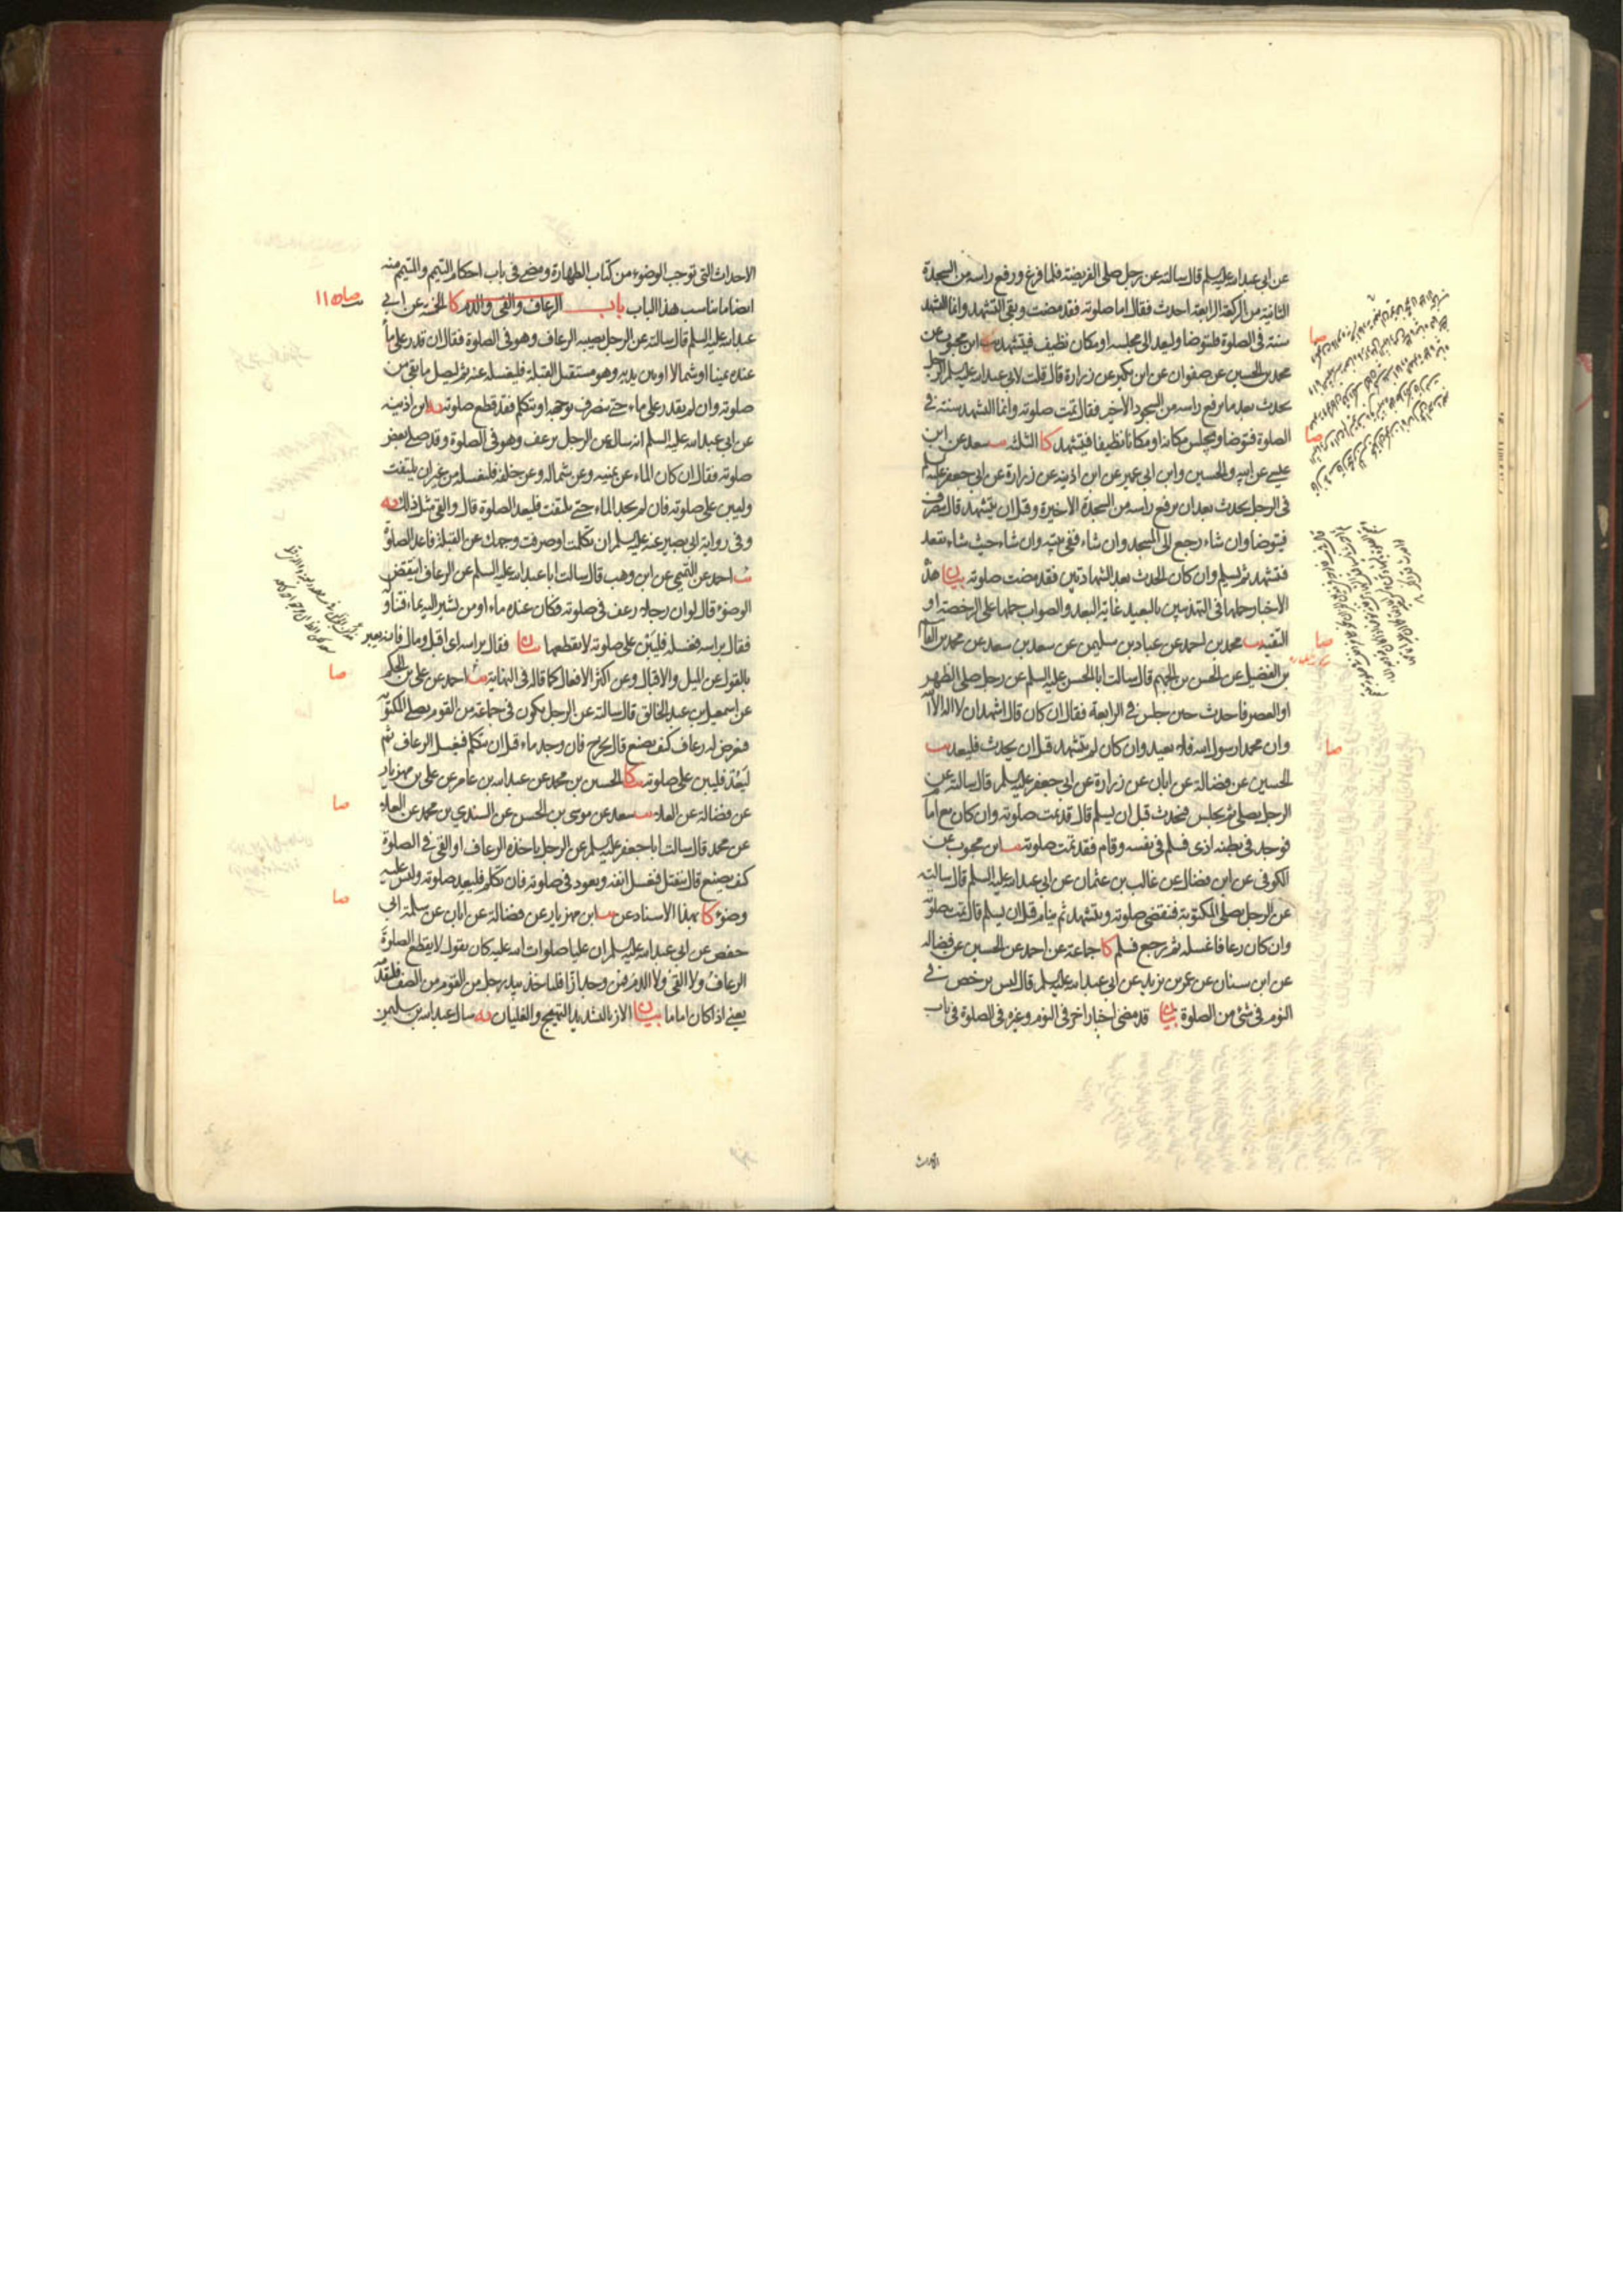 عن ابى عبدالله عليه السلم قال سالته عن رجل صلى الفريضة فلما فرغ ورفع راسه من السجدة
الثانية من الركعة الرابعة احدث فقال اما صلوته فقد مضت وبقى التشهد وانما التشهد
سنة فى الصلوة فليتوضا وليعد الى مجلسه او مكان نظيف فيتشهد يب ابن محبوب عن
محمد بن الحسين عن صفوان عن ابن بكير عن زرارة قال قلت لابى عبدالله عليه السلم الرجل
يحدث بعد ما يرفع راسه من السجود الاخير فقال تمت صلوته وانما التشهد سنة فى
الصلوة فيتوضا ويجلس مكانه او مكانا نظيفا فيتشهد كا الثلثه يب سعد عن ابن
عيسى عن ابيه والحسين وابن ابى عمير عن ابن اذينه عن زرارة عن ابى جعفر عليه السلم
فى الرجل يحدث بعد ان يرفع راسه من السجدة الاخيرة وقبل ان يتشهد قال ينصرف
فيتوضا وان شاء رجع الى المسجد وان شاء ففى بيته وان شاء حيث شاء يقعد
فيتشهد ثم يسلم وان كان الحدث بعد الشهادتين فقد مضت صلوته بيان هذه
الاخبار حملها فى التهذيبين بالبعيد غاية البعد والصواب حملها على الرخصة او
التقية يب محمد بن احمد عن عباد بن سليمن عن سعد بن سعد عن محمد بن القاسم
بن الفضيل عن الحسن بن الجهم قال سالت ابا الحسن عليه السلم عن رجل صلى الظهر
او العصر فاحدث حين جلس فى الرابعة فقال ان كان قال اشهد ان لا اله الا الله
وان محمدا رسول الله فلا يعيد وان كان لم يتشهد قبل ان يحدث فليعد يب
الحسين عن فضالة عن ابان عن زرارة عن ابى جعفر عليه السلم قال سالته عن
الرجل يصلى ثم يجلس فيحدث قبل ان يسلم قال قد تمت صلوته وان كان مع امام
فوجد فى بطنه اذى فسلم فى نفسه وقام فقد تمت صلوته يب ابن محبوب عن
الكوفى عن ابن فضال عن غالب بن عثمان عن ابى عبدالله عليه السلم قال سالته
عن الرجل يصلى المكتوبة فتنقضى صلوته ويتشهد ثم ينام قبل ان يسلم قال تمت صلوته
وان كان رعافا غسله ثم رجع فسلم كا جماعة عن احمد عن الحسين عن فضاله
عن ابن سنان عن عمر بن يزيد عن ابى عبدالله عليه السلم قال ليس يرخص فى
النوم فى شئ من الصلوة بيان قد مضى اخبار اخر فى النوم وغيره فى الصلوة فى باب
الاحداث
صا
صا
صا
صا
الاحداث التى توجب الوضوء من كتاب الطهارة ومضى فى باب احكام التيمم والمتيمم منه
ايضا ما يناسب هذا الباب باب الرعاف والقئ والدم كا الخمسه عن ابى
عبدالله عليه السلم قال سالته عن الرجل يصيبه الرعاف وهو فى الصلوة فقال ان قدر على ماء
عنده يمينا او شمالا او بين يديه وهو مستقبل القبلة فليغسله عنه ثم ليصل ما بقى من
صلوته وان لم يقدر على ماء حتى ينصرف بوجهه او يتكلم فقد قطع صلوته يه ابن اذينه
عن ابى عبدالله عليه السلم انه ساله عن الرجل يرعف وهو فى الصلوة وقد صلى بعض
صلوته فقال ان كان الماء عن يمينه وعن شماله وعن خلفه فليغسله من غير ان يلتفت
وليبن على صلوته فان لم يجد الماء حتى يلتفت فليعد الصلوة قال والقئ مثل ذلك يه
وفى رواية ابى بصير عنه عليه السلم ان تكلمت او صرفت وجهك عن القبلة فاعد الصلوة
يب احمد عن التميمى عن ابن وهب قال سالت ابا عبدالله عليه السلم عن الرعاف اينقض
الوضوء قال لو ان رجلا رعف فى صلوته فكان عنده ماء او من يشير اليه بماء فتناوله
فقال براسه فغسله فليبن على صلوته لا يقطعها بيان فقال براسه اى اقبل ومال فانه يعبر
بالقول عن الميل والاقبال وعن اكثر الافعال كما قاله فى النهاية يب احمد عن على بن الحكم
عن اسمعيل بن عبد الخالق قال سالته عن الرجل يكون فى جماعة من القوم يصلى المكتوبة
فيعرض له رعاف كيف يصنع قال يخرج فان وجد ماء قبل ان يتكلم فيغسل الرعاف ثم
ليعد فليبن على صلوته كا الحسين بن محمد عن عبدالله بن عامر عن على بن مهزيار
عن فضالة عن العلاء يب سعد عن موسى بن الحسن عن السندى بن محمد عن العلاء
عن محمد قال سالت ابا جعفر عليه السلم عن الرجل ياخذه الرعاف او القئ فى الصلوة
كيف يصنع قال ينفتل فيغسل انفه ويعود فى صلوته فان تكلم فليعد صلوته وليس عليه
وضوء كا بهذا الاسناد عن يب ابن مهزيار عن فضالة عن ابان عن سلمة ابى
حفص عن ابى عبدالله عليه السلم ان عليا صلوات الله عليه كان يقول لا يقطع الصلوة
الرعاف ولا القئ ولا الدم فمن وجد ازا فلياخذ بيد رجل من القوم من الصف فليقدمه
يعنى اذا كان اماما بيان الاز بالتشديد التهييج والغليان يه سال عبدالله بن سليمن
صا
صا
صا